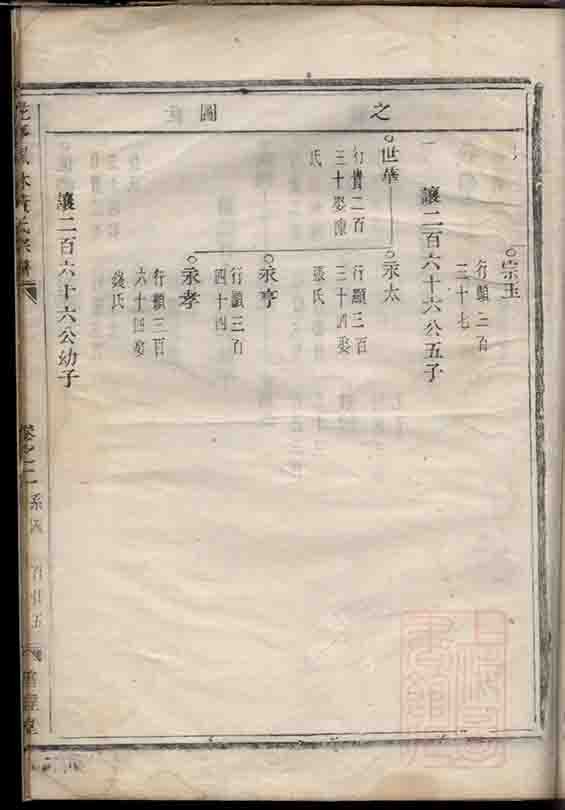 之圖
宗玉
行顯二百
三十七
讓二百六十六公五子
世華
行貴二百
三十娶陳
氏
永太
行顯三百
三十四娶
張氏
永亨
行顯三百
四十四
永孝
行顯三百
六十四娶
錢氏
讓二百六十六公幼子
卷之二
系圖
百廿五